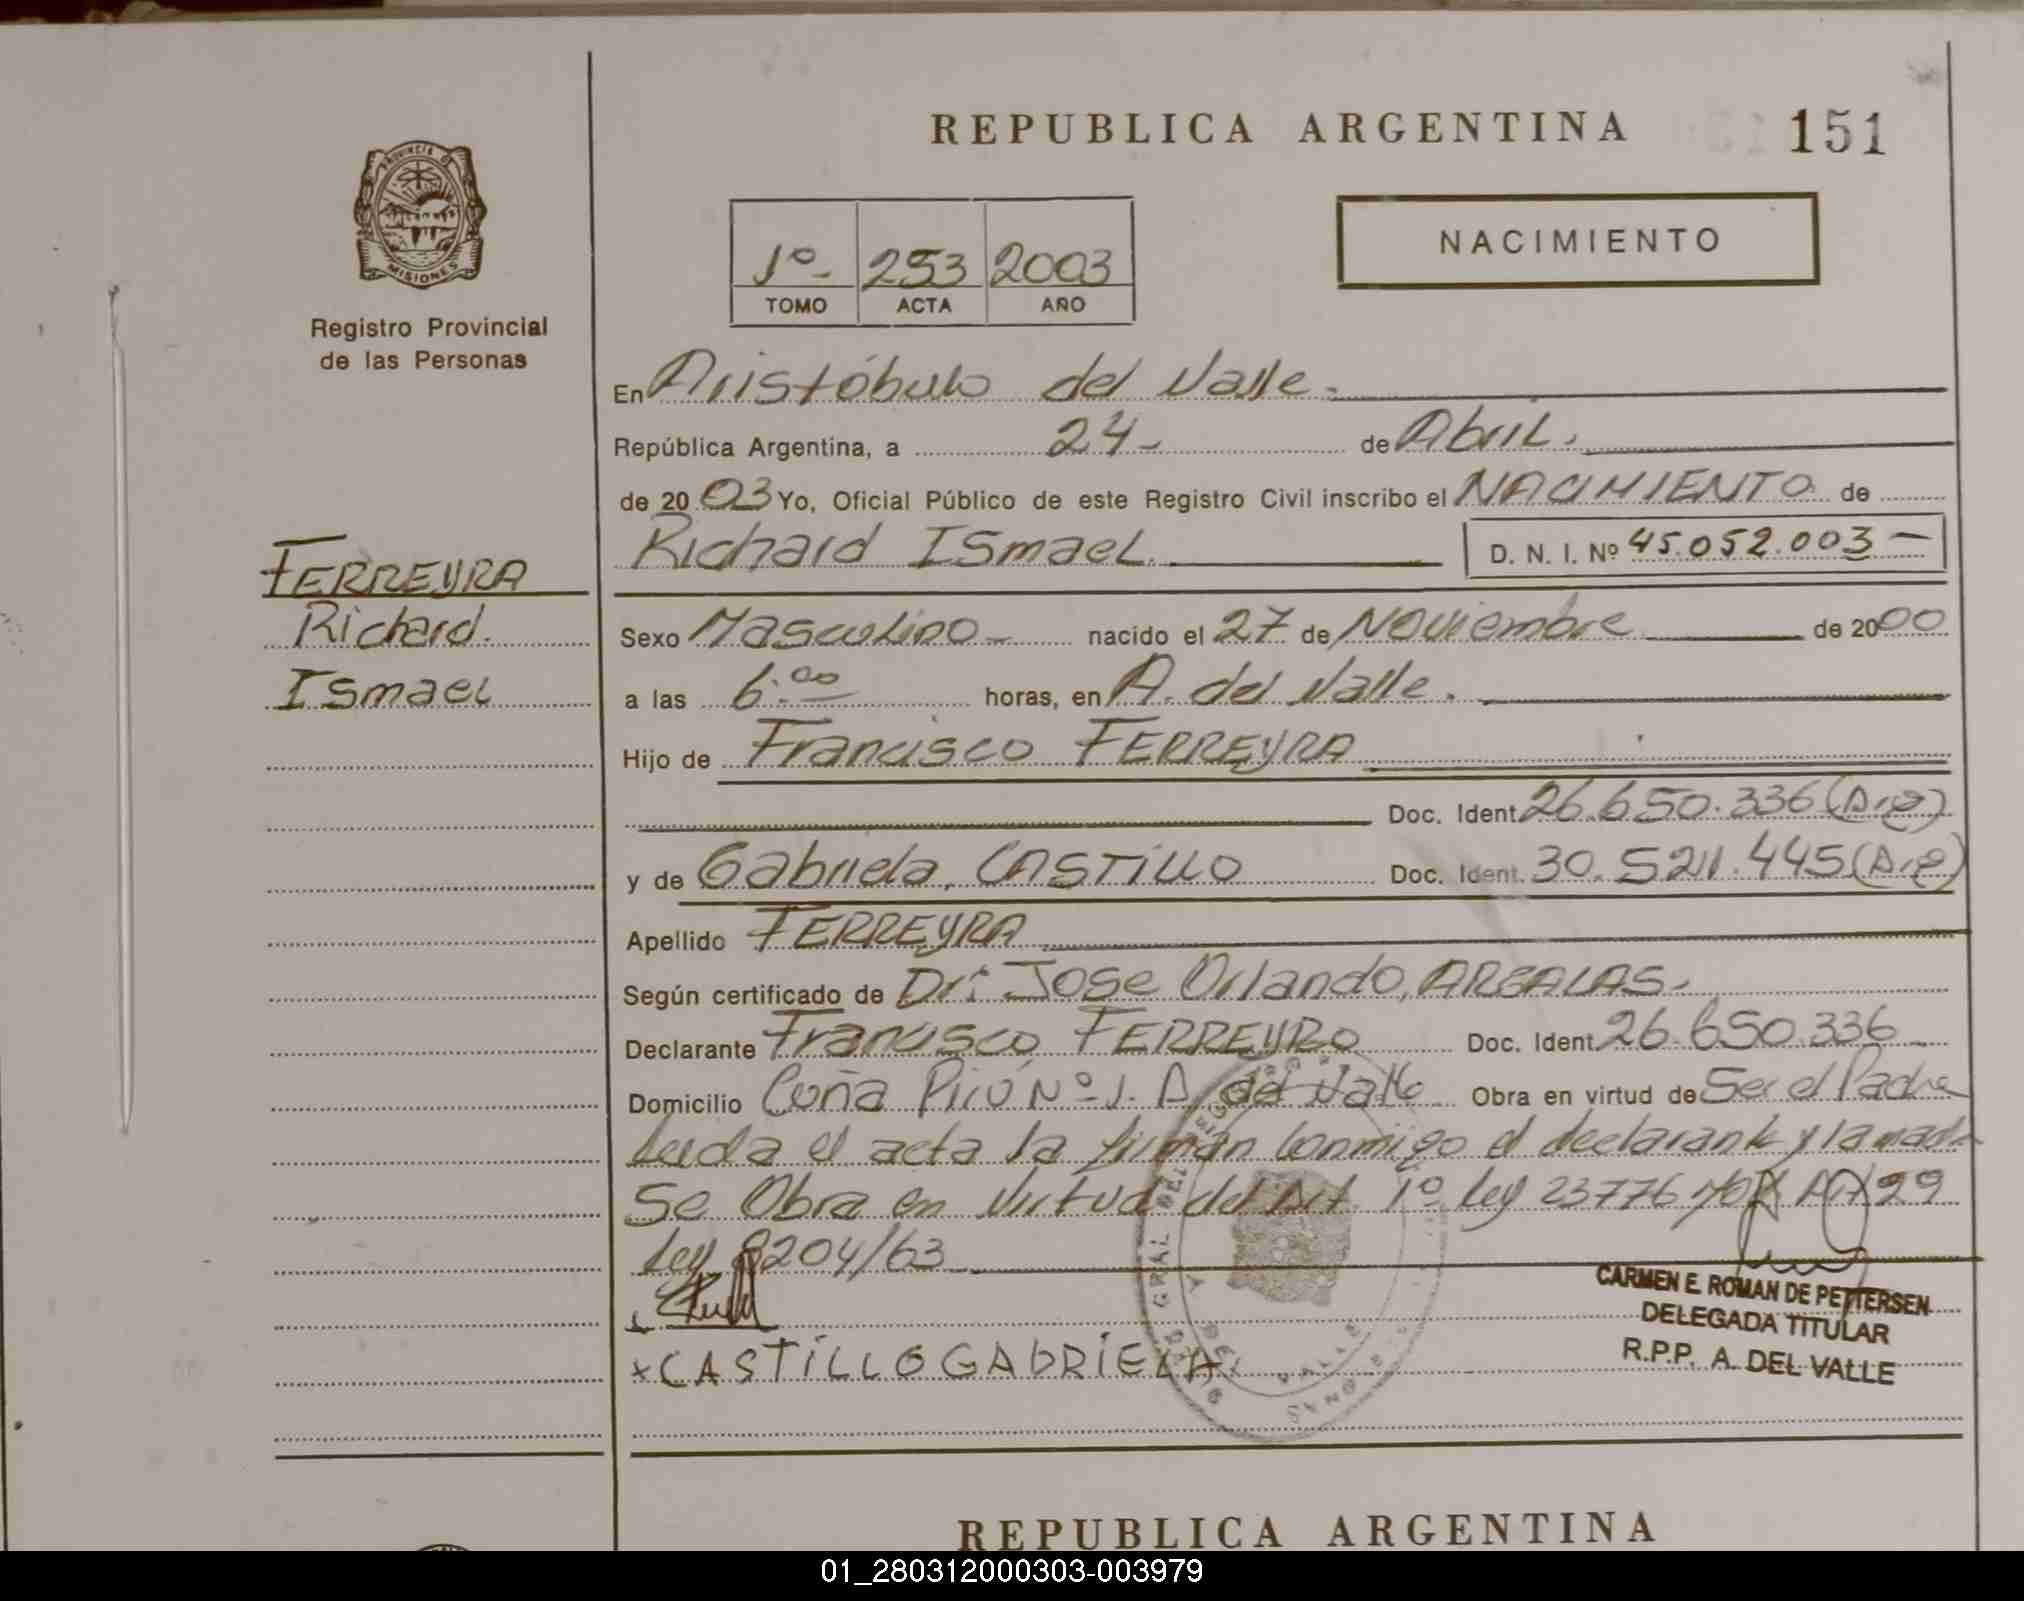 REPUBLICA ARGENTINA 151
PROVINCIA DE MISIONES
Registro Provincial
de las Personas
NACIMIENTO
1º- 253 2003
TOMO ACTA AÑO
En Aristóbulo del Valle.
República Argentina, a 24- de Abril.
de 2003 Yo, Oficial Público de este Registro Civil inscribo el NACIMIENTO de
Richard Ismael. D. N. I. Nº 45.052.003-
FERREYRA
Richard.
Ismael
Sexo Masculino- nacido el 27 de Noviembre de 2000
a las 6:00 horas, en A. del Valle.
Hijo de Francisco FERREYRA
Doc. Ident. 26.650.336 (Arg)
y de Gabriela, CASTILLO Doc. Ident. 30.521.445 (Arg)
Apellido FERREYRA
Según certificado de Dr: Jose Orlando, ARGALAS.
Declarante Francisco FERREYRO Doc. Ident. 26.650.336
Domicilio Cuña Pirú Nº 1. A. del Valle Obra en virtud de Ser el Padre
Leida el acta la firman conmigo el declarante y la madre
Se Obra en Virtud del Art. 1º Ley 23776 99
Ley 8204/63
x CASTILLO GABRIELA
CARMEN E. ROMAN DE PETTERSEN
DELEGADA TITULAR
R.P.P. A. DEL VALLE
REPUBLICA ARGENTINA
01_280312000303-003979